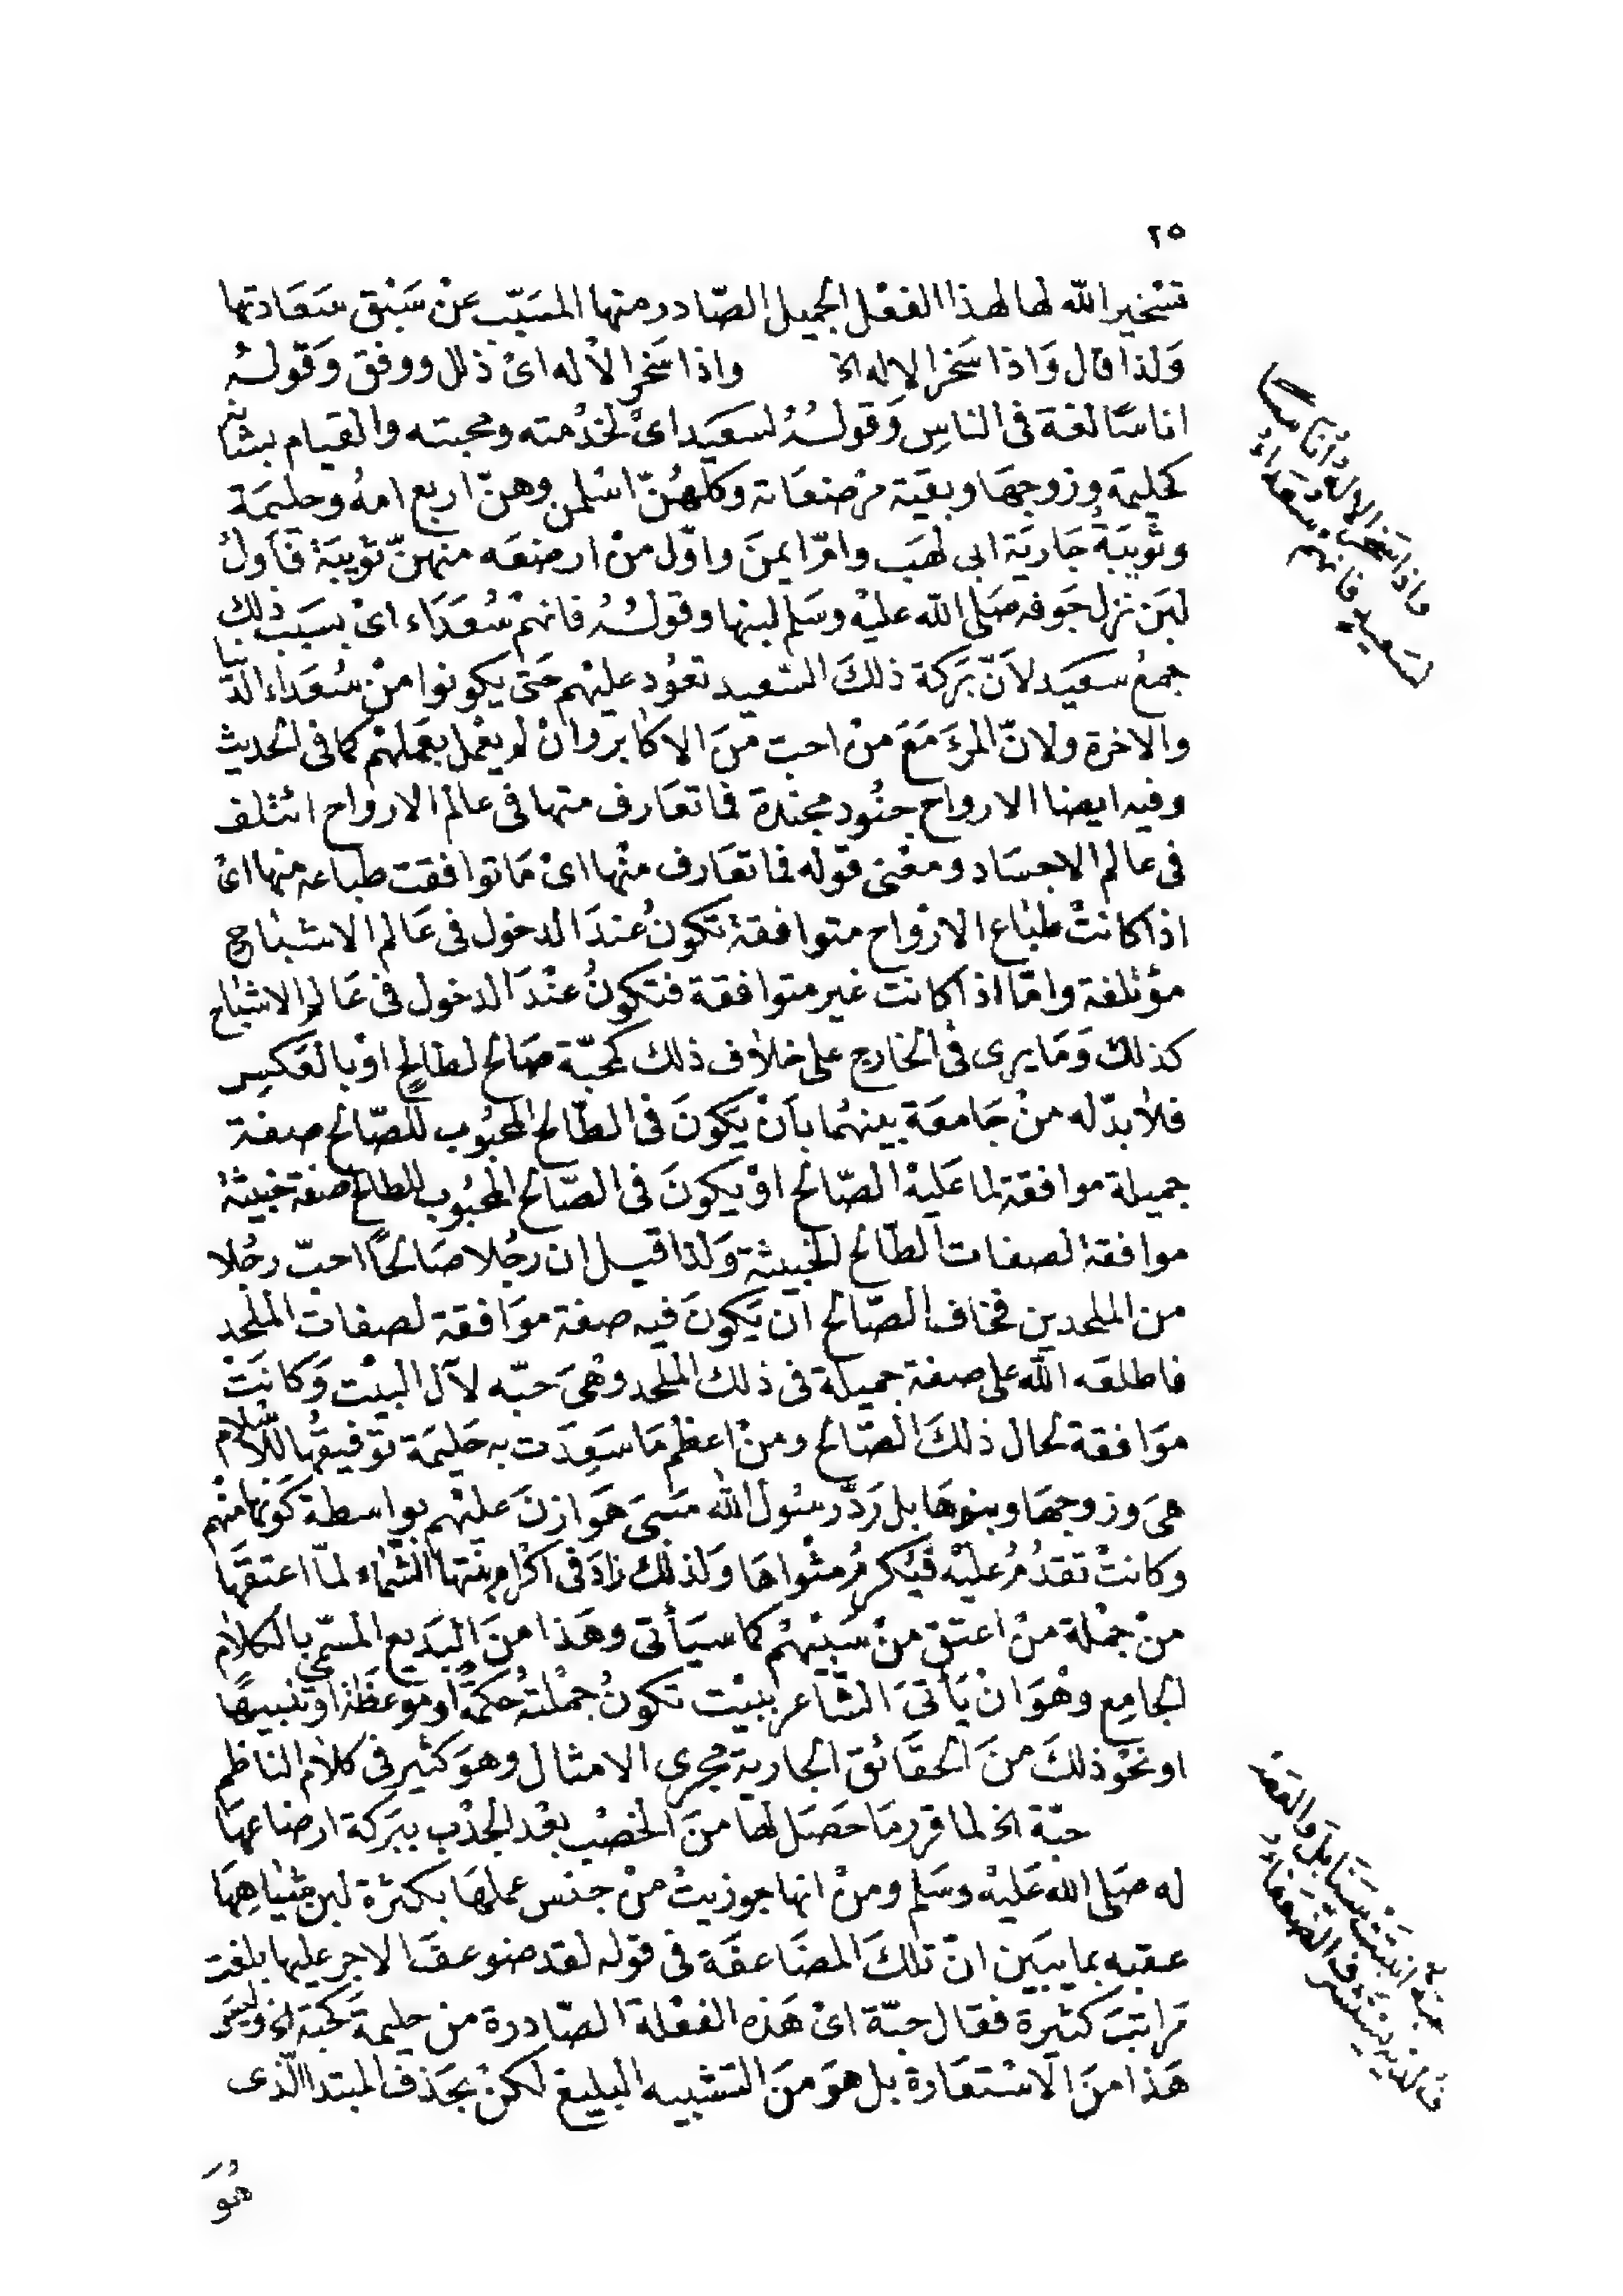 ٢٥
تسْخير الله لها لهذا الفعْل الجميل الصّادر منها المسَبّب عَنْ سَبْق سَعَادتها
وَلذا قال وَاذا سَخر الاله الخ واذا سَخر الاله اىْ ذلل ووفق وَقولهُ
اناسًا لغة فى الناسِ وَقولهُ لسَعيد اىْ لخدْمته ومحبته والقيام بشانه
كحليمة وزوجهَا وبقيَة مرْضعَاته وكلهُنّ اسْلمن وهنّ اربع امهُ وحليمَة
وثُوَيبَةُ جَاريَة ابى لهَب وامّ ايمنَ واوّل منْ ارضعَه منهنّ ثوَيبَة فَاَولُ
لبَن نزل جَوفه صَلى الله عليْه وسَلم لبنها وقولهُ فانهمْ سُعَدَاء اىْ بسَبَب ذلك
جمعُ سعَيد لاَنّ بَركة ذلكَ السّعيد تعُود عليْهم حَتى يكونوا منْ سُعَداء الدّنيا
والاخرة ولانّ المرءَ مَعَ منْ احب منَ الاكابر وانْ لم يعْمل بعَملهْم كما فى الحديث
وفيه ايضا الارواح جنُود مجنّدة فما تعَارف منها فى عالم الارواح ائتلف
فى عالم الاجسَاد ومعْنى قوْله فما تعَارف منْها اىْ مَا توافقت طباعه منها اىْ
اذا كانتْ طباع الارْواح متوافقة تكونُ عندَ الدخول فى عَالم الاشباح
مؤتلفة وامّا اذا كانت غير متوافقة فتكونُ عنْدَ الدخول فى عَالم الاشباح
كذلكَ وَمَا يرى فى الخارج على خلاف ذلك كمحبّة صَالح لطالحٍ اوْ بالعَكسِ
فلا بدّ له منْ جَامعَة بينهُما بأنْ يَكونَ فى الطّالح المحبُوب للصّالح صفة
جميلة موافقة لما عَليْه الصّالح اوْ يكونَ فى الصَّالح المحبُوب للطالح صفة خبيثهُ
موافقة لصفات الطّالح الخبيثة وَلذا قيل ان رجُلا صَالحًا احبّ رجُلا
من الملحدين فخاف الصّالح اَن يَكونَ فيه صفة موَافقة لصفات الملْحد
فاطلعَه الله على صفة جميلة فى ذلك الملْحد وهْىَ حبّه لآل البيْت وَكانَتْ
موَافقة لحال ذلكَ الصّالح ومنْ اعظم مَا سَعِدَت به حَليمَة توفيقُها للاسلام
هىَ وزوجهَا وبنوهَا بل رَدّ رسُول الله سَبىَ هَوَازنَ عَليْهم بواسطة كَونهَا منْهم
وكانتْ تقدُمُ عليْه فيُكرمُ مثْواهَا وَلذلكَ زادَ فى اكرام بنتها الشّيْماء لمّا اعتقَها
منْ جمْلة منْ اعتق منْ سَبْيهمْ كما سيَأتى وهَذا منَ البَديع المسَمّى بالكلام
الجامِع وهْوَ انْ يَأتىَ الشّاعر ببيْت تكونُ جمْلتهُ حكمَةً او موْعظَة او تنبيهًا
او نحْو ذلكَ منَ الحقَائق الجارية مجرى الامثال وهوَ كثير فى كلام الناظم
حبّة الخ لما قرر مَا حَصَل لها منَ الخصْب بعْد الجدْب ببَركة ارضاعهَا
له صَلى الله عَليْه وسَلم ومنْ انها جوزيتْ منْ جنس عملهَا بكثرة لبن شياهِهَا
عقبه بما يبَين انّ تلكَ المضَاعفَة فى قوله لقد ضوعف الاجر عليها بلغت
مَراتبَ كثيرة فقال حبّة اىْ هَذه الفعْلة الصّادرة من حليمةَ كحبة الخ وليسَ
هَذا منَ الاسْتعَارة بل هوَ منَ التشبيه البليغ لكنْ بحَذف المبتدا الّذى
هُوَ
واذا سَخر الالهُ أُناسًا
لسَعيدٍ فانهم سُعَدَاءُ
حَبّة انبَتَتْ سَنَابلَ وَالعَصْفُ
لَدَيْه يَسْتَشْرف الضّعَفاءُ